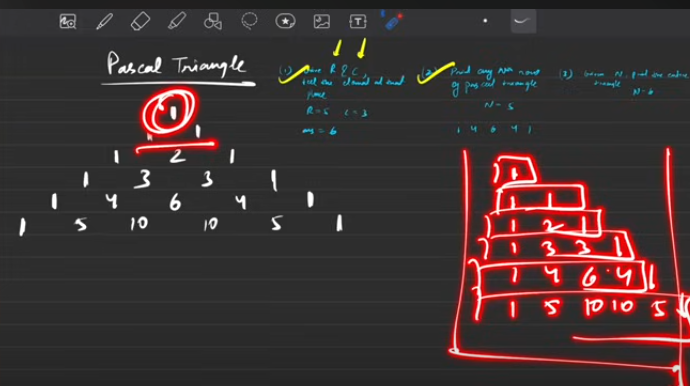 Pascal Triangle
1
1 1
1 2 1
1 3 3 1
1 4 6 4 1
1 5 10 10 5 1
(1) Given R & C,
tell me element at that
place
R = 5 C = 3
ans = 6
(2) Print any Nth row
of pascal triangle
N = 5
1 4 6 4 1
(3) Given N, print the entire
triangle
N = 6
1
1 1
1 2 1
1 3 3 1
1 4 6 4 1
1 5 10 10 5